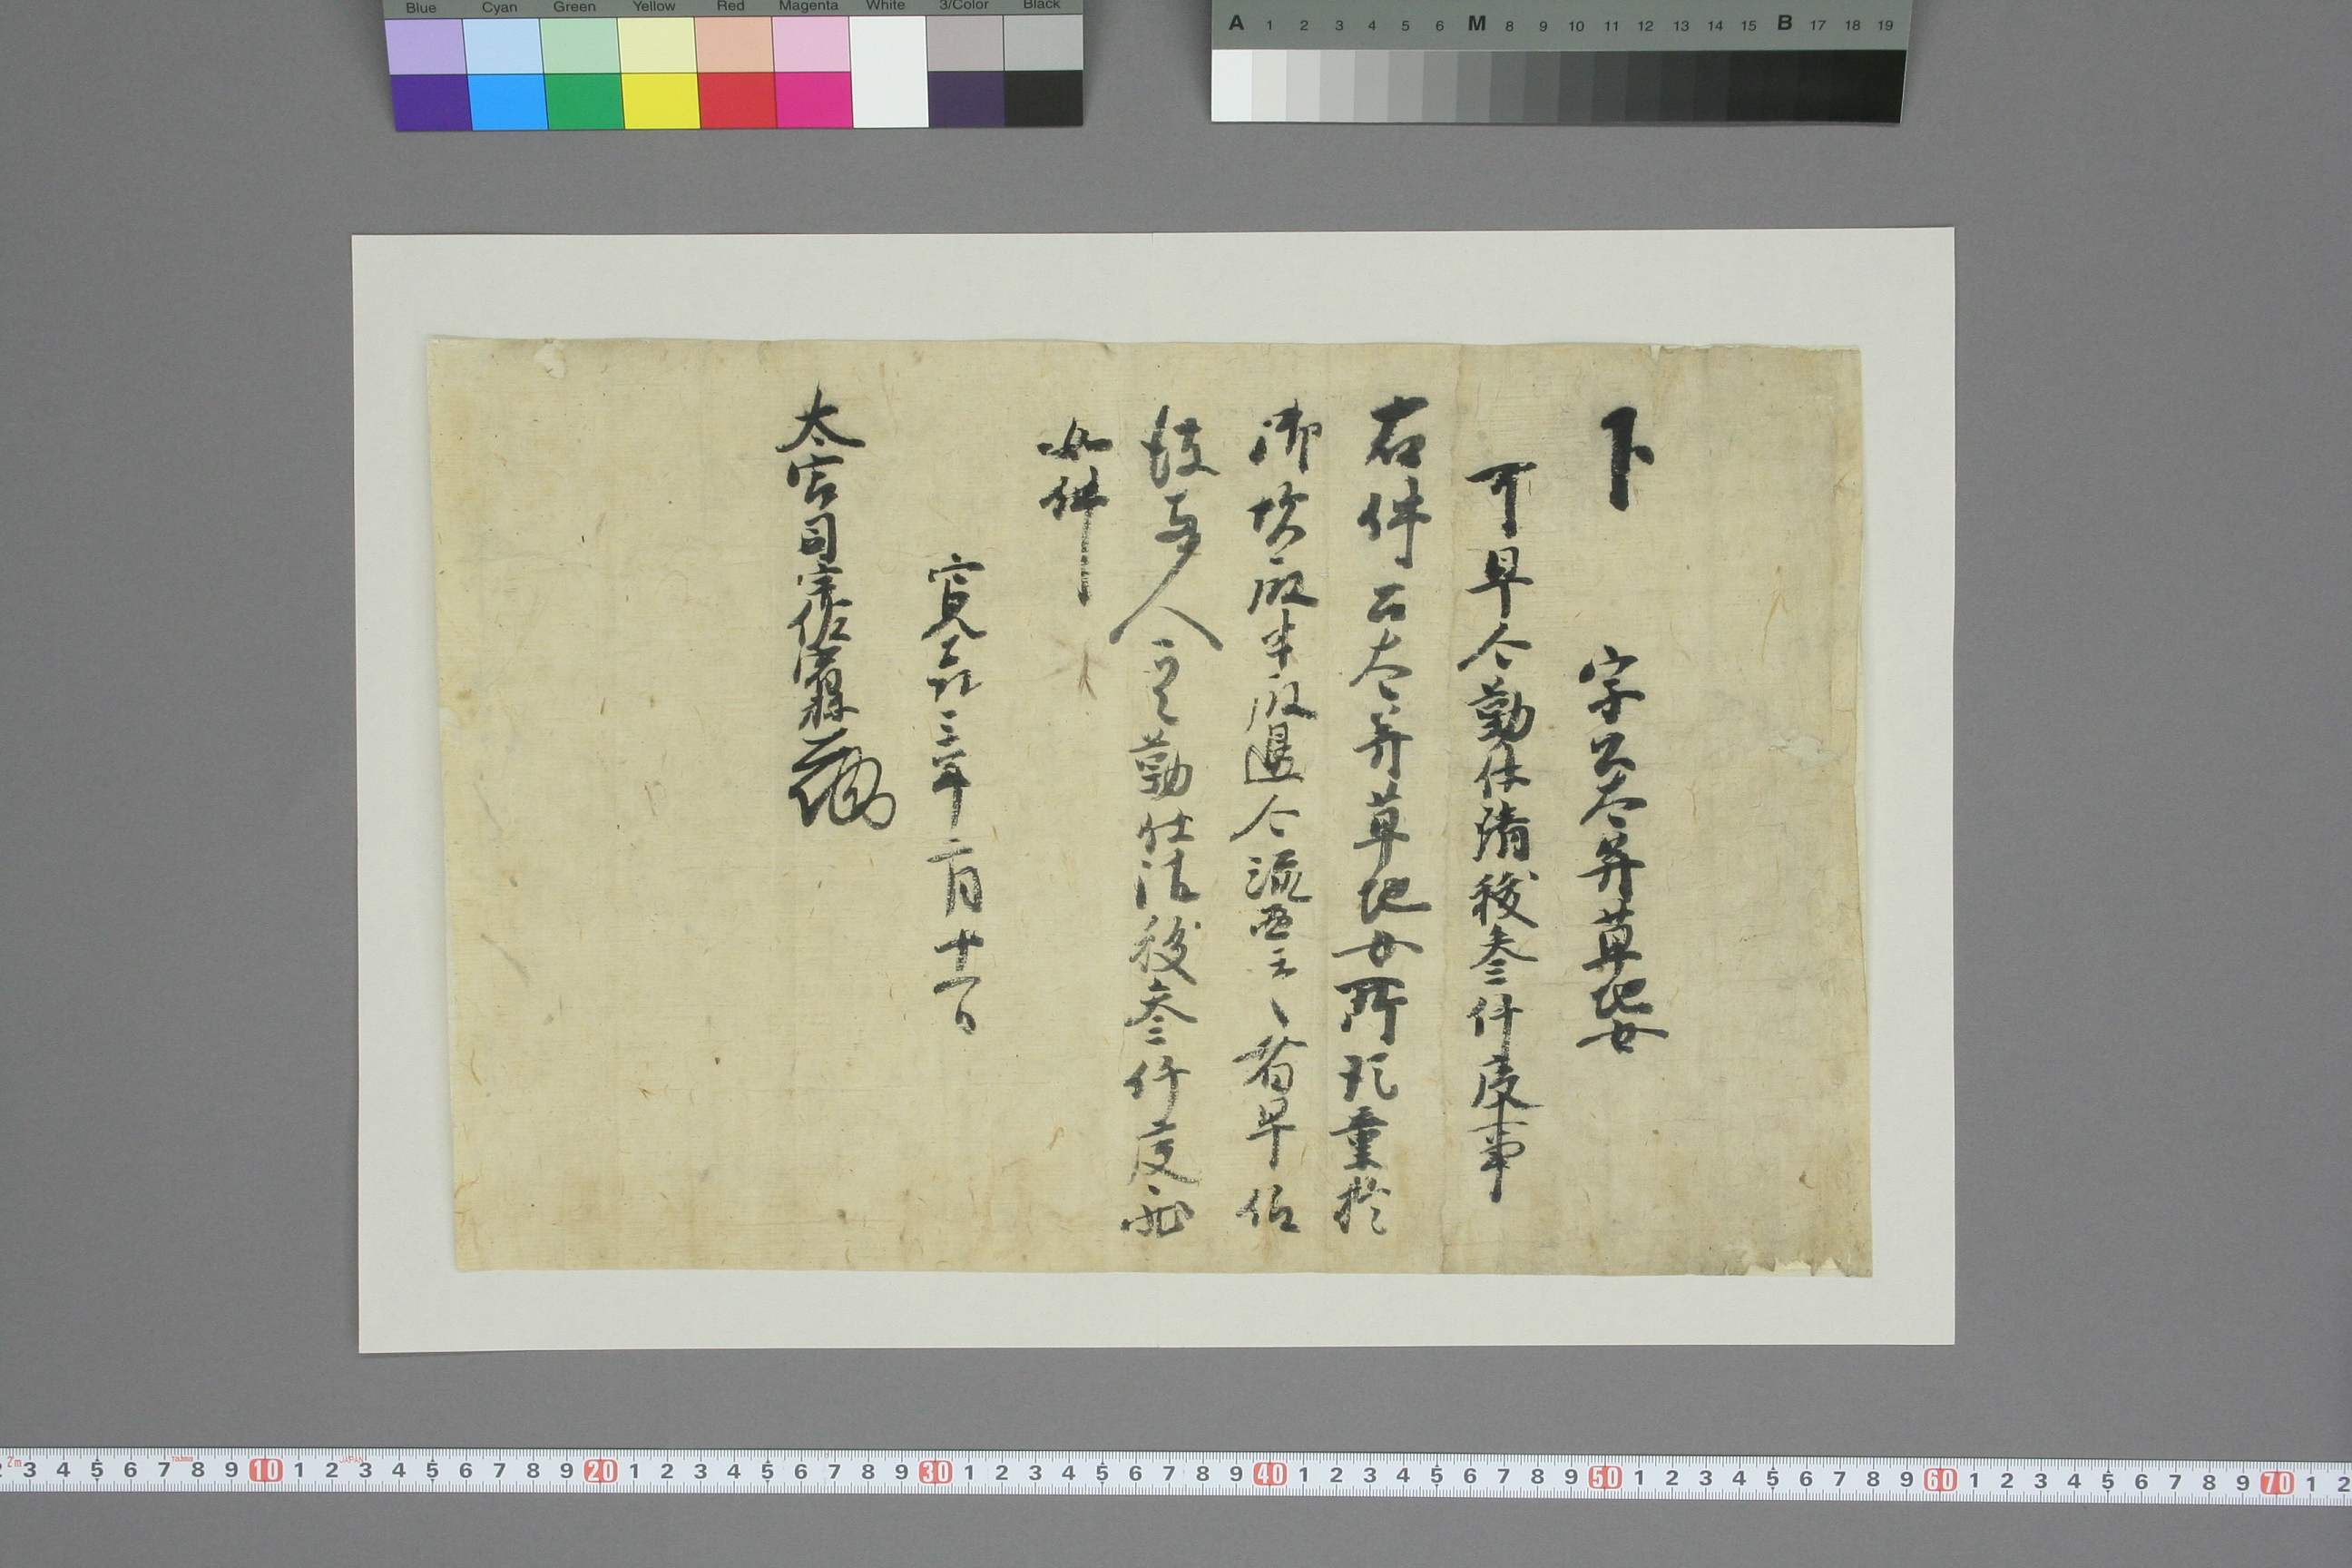 Blue Cyan Green Yellow Red Magenta White 3/Color Black
A 1 2 3 4 5 6 M 8 9 10 11 12 13 14 15 B 17 18 19
下 字公太并草地女
可早令勤仕清祓参仟度事
右件公太并草地女所犯重於
御炊殿半殿邊令流血云〻者早任
彼両人ニ可令勤仕清祓参仟度之状
如件
寛喜三年二月十一日
大宮司宇佐宿祢
2 2m 3 4 5 6 7 8 9 10 1 2 3 4 5 6 7 8 9 20 1 2 3 4 5 6 7 8 9 30 1 2 3 4 5 6 7 8 9 40 1 2 3 4 5 6 7 8 9 50 1 2 3 4 5 6 7 8 9 60 1 2 3 4 5 6 7 8 9 70 1 2